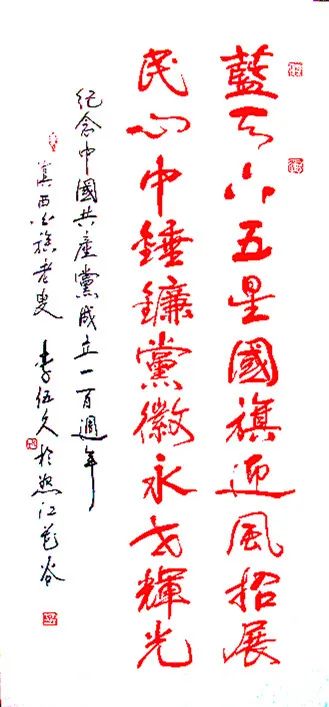 藍天下五星國旗迎風招展
民心中錘鐮黨徽永放輝光
紀念中國共產黨成立一百週年
滇西 族老叟 李伍久於怒江 谷